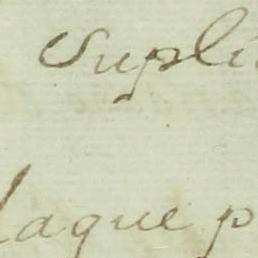 Supli
laque p